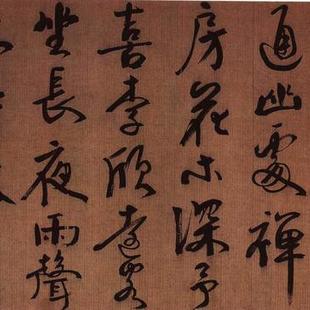 通幽處禅
房花木深予
喜李欣遠客
坐長夜雨聲